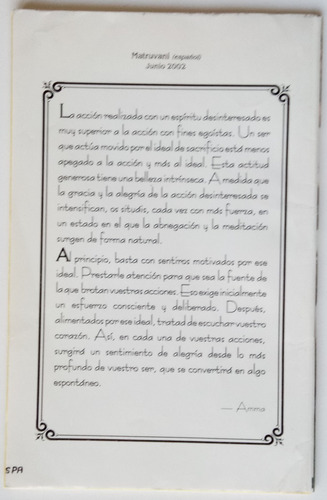 Matruvani (español)
Junio 2002
La acción realizada con un espíritu desinteresado es
muy superior a la acción con fines egoístas. Un ser
que actúa movido por el ideal de sacrificio está menos
apegado a la acción y más al ideal. Esta actitud
generosa tiene una belleza intrínseca. A medida que
la gracia y la alegría de la acción desinteresada se
intensifican, os situáis, cada vez con más fuerza, en
un estado en el que la abnegación y la meditación
surgen de forma natural.
Al principio, basta con sentiros motivados por ese
ideal. Prestarle atención para que sea la fuente de
la que brotan vuestras acciones. Eso exige inicialmente
un esfuerzo consciente y deliberado. Después,
alimentados por ese ideal, tratad de escuchar vuestro
corazón. Así, en cada una de vuestras acciones,
surgirá un sentimiento de alegría desde lo más
profundo de vuestro ser, que se convertirá en algo
espontáneo.
— Amma
SPA